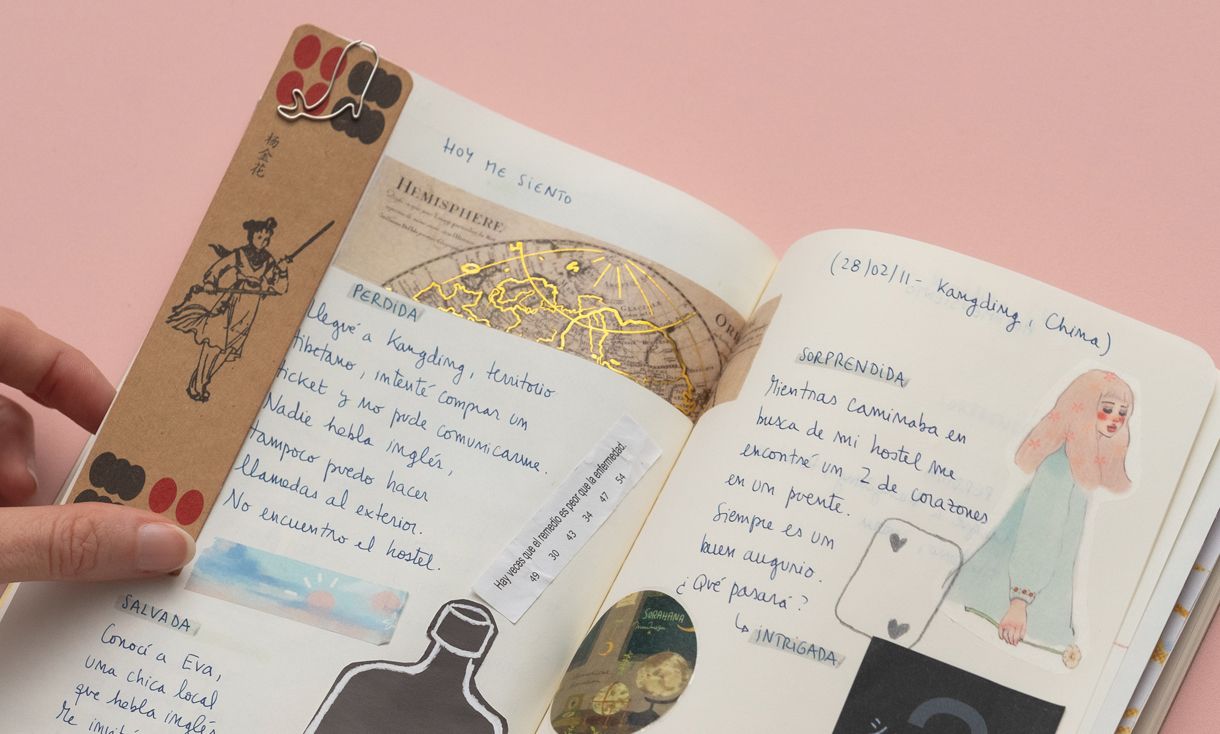 杨金花
HOY ME SIENTO
HEMISPHERE
PERDIDA
Llegué a Kangding, territorio
tibetano, intenté comprar un
ticket y no pude comunicarme.
Nadie habla inglés,
tampoco puedo hacer
llamadas al exterior.
No encuentro el hostel.
Hay veces que el remedio es peor que la enfermedad.
49 30 43 34 47 54
SALVADA
Conocí a Eva,
una chica local
que habla inglés
Me
(28/02/11 - Kangding, China)
SORPRENDIDA
Mientras caminaba en
busca de mi hostel me
encontré un 2 de corazones
en un puente.
Siempre es un
buen augurio.
¿Qué pasará?
↳ INTRIGADA
SORAHANA